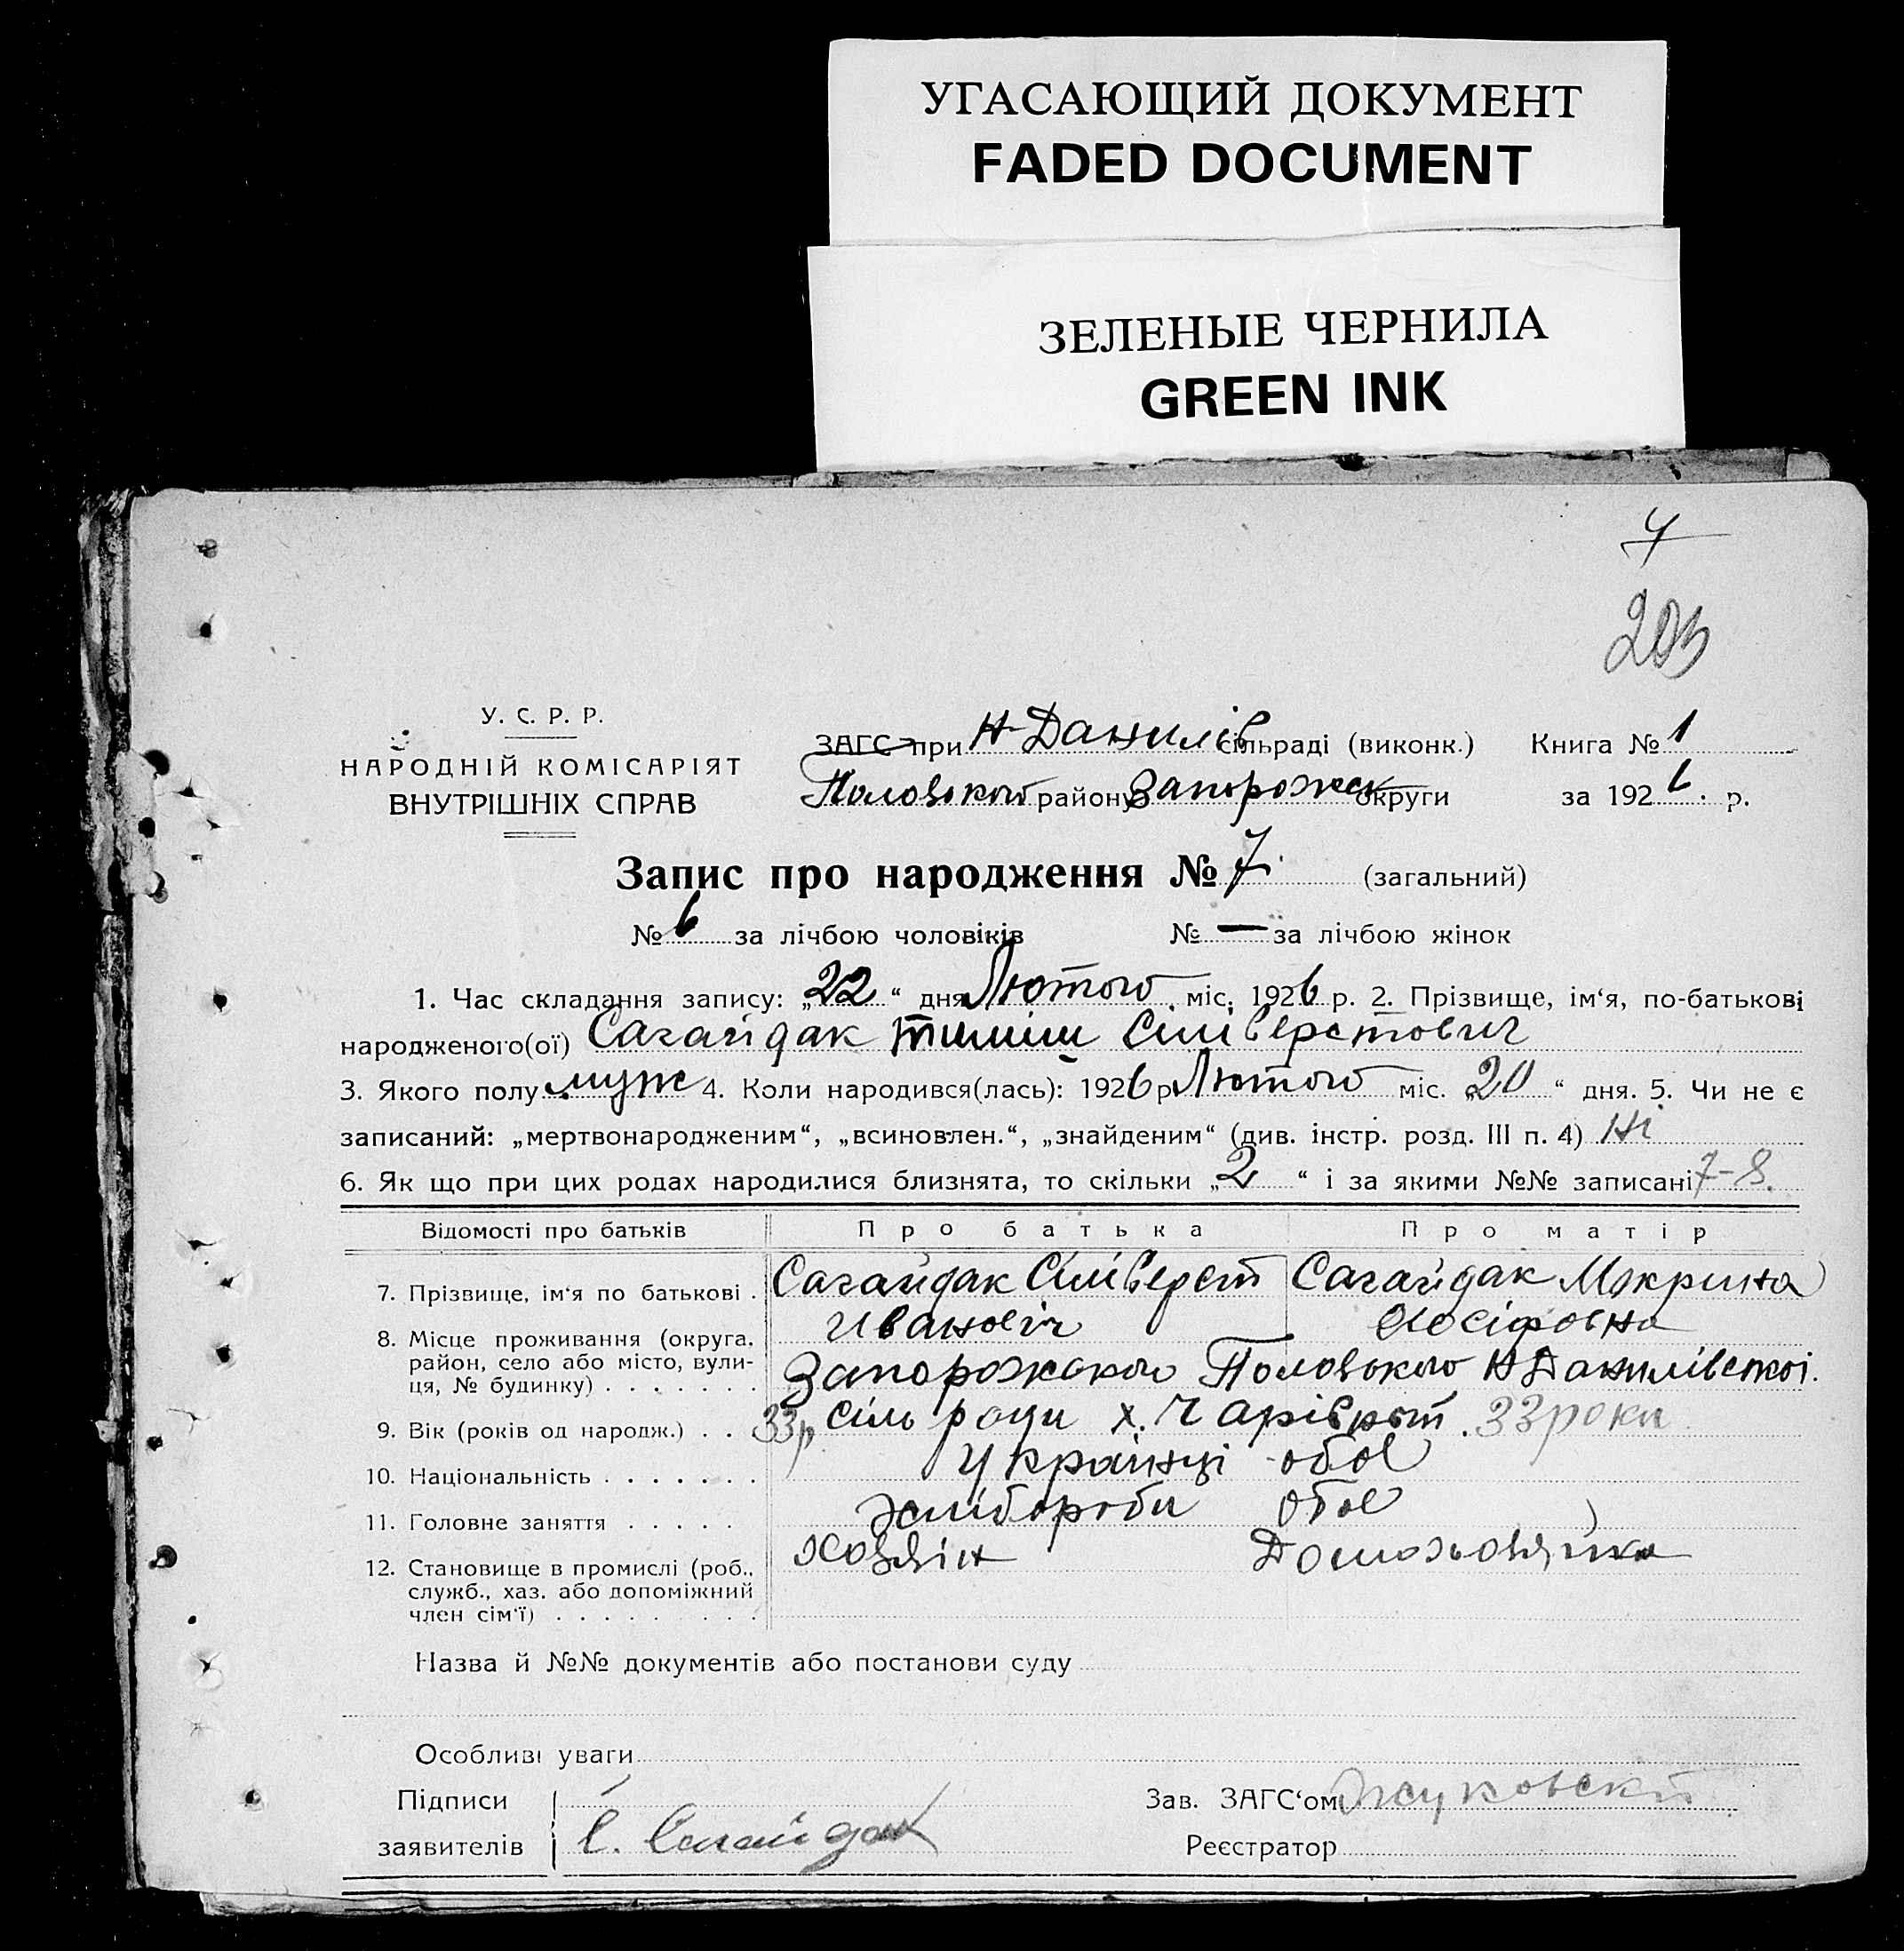 УГАСАЮЩИЙ ДОКУМЕНТ
FADED DOCUMENT
ЗЕЛЕНЫЕ ЧЕРНИЛА
GREEN INK
7
203
У. С. Р. Р.
НАРОДНІЙ КОМІСАРІЯТ
ВНУТРІШНІХ СПРАВ
ЗАГС при Н-Данилів сільраді (виконк.) Книга № 1
Пологського району Запорожск округи за 1926. р.
Запис про народження № 7. (загальний)
№ 6 за лічбою чоловіків № — за лічбою жінок
1. Час складання запису: „22“ дня Лютого міс. 1926 р. 2. Прізвище, ім‘я, по-батькові
народженого(ої) Сагайдак Тиміш Сілівєрстович
3. Якого полу муж 4. Коли народився(лась): 1926 р Лютого міс. „20“ дня. 5. Чи не є
записаний: „мертвонародженим“, „всиновлен.“, „знайденим“ (див. інстр. розд. III п. 4) Ні
6. Як що при цих родах народилися близнята, то скільки „2“ і за якими №№ записані 7-8.
Відомості про батьків Про батька Про матір
7. Прізвище, ім‘я по батькові . Сагайдак Сілівєрст Сагайдак Мокрина
Иванович Йосіфовна
8. Місце проживання (округа, район, село або місто, вули-
ця, № будинку) . . . . . . . Запорожського Пологського Н Данилівської.
сіль ради х.
9. Вік (років од народж.) . . 33р 33 роки
10. Національність . . . . . . . Українці обоє
11. Головне заняття . . . . . хлібороби обоє
12. Становище в промислі (роб., Хозяін Домохозяйка
служб., хаз. або допоміжний
член сім‘ї) . . . . . . . . .
Назва й №№ документів або постанови суду
Особливі уваги
Підписи Зав. ЗАГС‘ом Жуковскій
заявителів С. Сагайдак Реєстратор